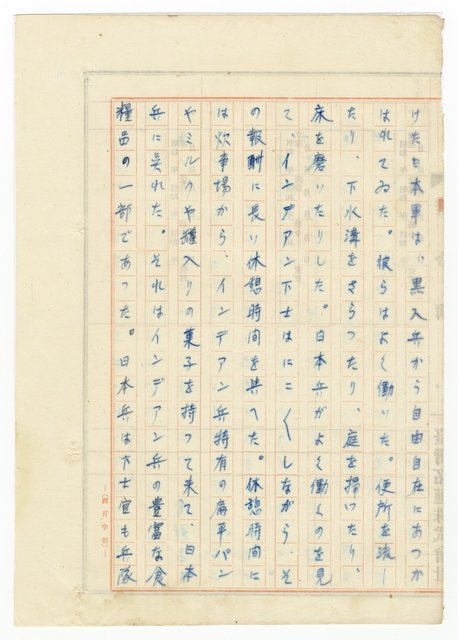 けた日本軍は、黒人兵から自由自在にあつか
はれてゐた。彼らはよく働いた。便所を流し
たり、下水溝をさらつたり、庭を掃いたり、
床を磨いたりした。日本兵がよく働くのを見
て、インデアン下士はにこ〱しながら、そ
の報酬に長い休憩時間を與へた。休憩時間に
は炊事場から、インデアン兵特有の扁平パン
やミルクや罐入りの菓子を持つて来て、日本
兵に呉れた。それはインデアン兵の豊富な食
糧品の一部であつた。日本兵は下士官も兵隊
(四百字詰)